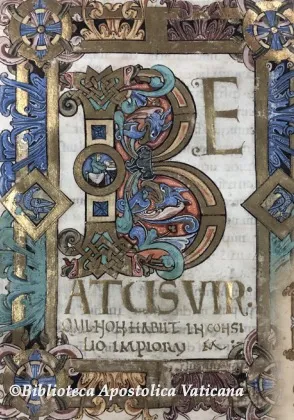 BE
ATUS VIR:
QUI NON HABIIT IN CONSI
LIO IMPIORUM
©Biblioteca Apostolica Vaticana